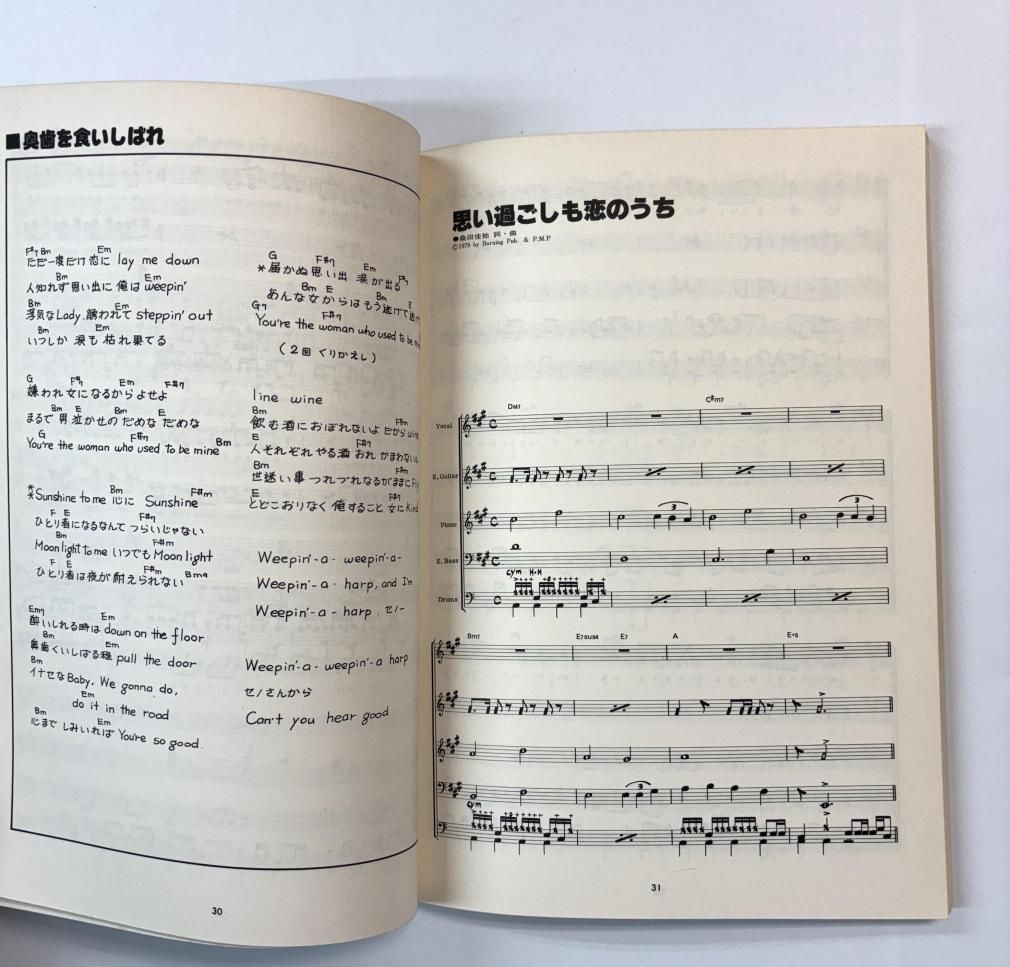 ■奥歯を食いしばれ
F#7 Bm Em
ただ一度だけ恋に lay me down
Bm Em
人知れず思い出に 俺は weepin'
Bm Em
浮気な Lady, 誘われて steppin' out
Bm Em
いつしか 涙も 枯れ果てる
G F#7 Em F#7
嫌われ女になるからよせよ
Bm E Bm E
まるで男泣かせの だめな だめな
G F#7 Bm
You're the woman who used to be mine
Bm F#m
*Sunshine to me 心に Sunshine
F E F#7
ひとり者になるなんて つらいじゃない
Bm F#m
Moonlight to me いつでも Moonlight
F E F#m Bm9
ひとり者は夜が耐えられない
Em7 Em
酔いしれる時は down on the floor
Bm Em
奥歯くいしばる程 pull the door
Bm
イナセな Baby, We gonna do,
Em
do it in the road
Bm Em
心まで しみいれば You're so good.
G F#7 Em F#7
*届かぬ思い出 涙が出る
Bm E Bm E
あんな女からはもう逃げて
G7 F#7
You're the woman who used to be
(2回 くりかえし)
line wine
Bm F#m
飲む酒におぼれないよ だから wine
E F#7
人それぞれやる酒 おれ かまわない
Bm F#m
世迷い事 つれづれなるがままに
E F#7
とどこおりなく 俺すること 女に Kind
Weepin'-a- weepin'-a-
Weepin'-a- harp, and I'm
Weepin'-a- harp, セノー
Weepin'-a- weepin'-a harp
セノさんから
Can't you hear good
30
思い過ごしも恋のうち
●桑田佳祐 詞・曲
©1979 by Burning Pub. & P.M.P
DM7 C#m7
Vocal
E.Guitar
3 3
Piano
E.Bass
cym H.H
Drums
Bm7 E7sus4 E7 A E+5
3
cym
31